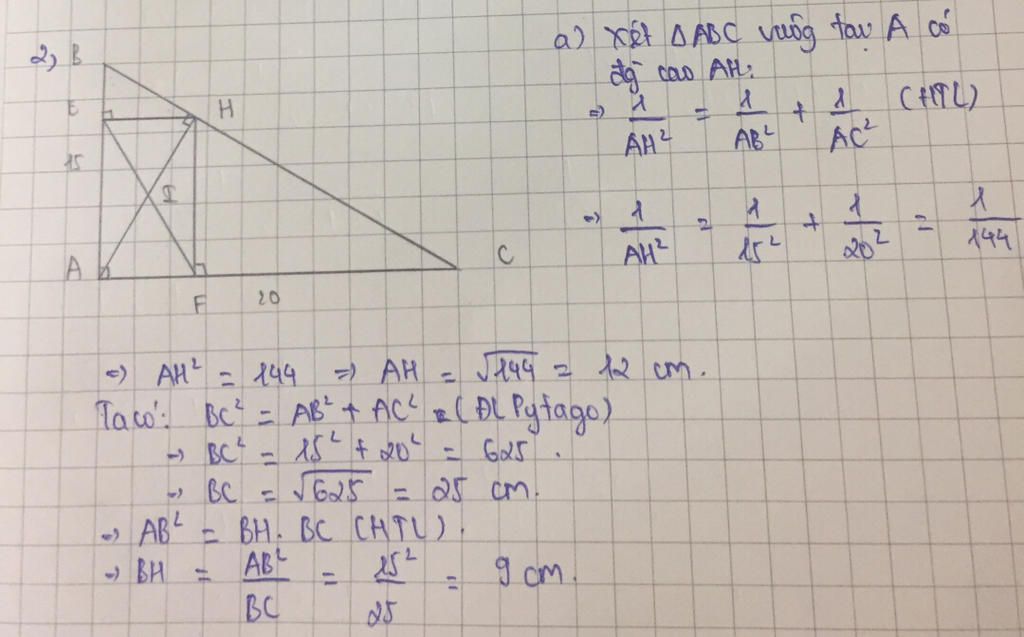 2,
B
E
H
15
I
A
C
F
20
a) Xét ΔABC vuôg tại A có
đg cao AH:
=> 1/AH² = 1/AB² + 1/AC² (HTL)
=> 1/AH² = 1/15² + 1/20² = 1/144
=> AH² = 144 => AH = √144 = 12 cm.
Ta có: BC² = AB² + AC² (ĐL Pytago)
=> BC² = 15² + 20² = 625.
=> BC = √625 = 25 cm.
=> AB² = BH. BC (HTL).
=> BH = AB²/BC = 15²/25 = 9 cm.